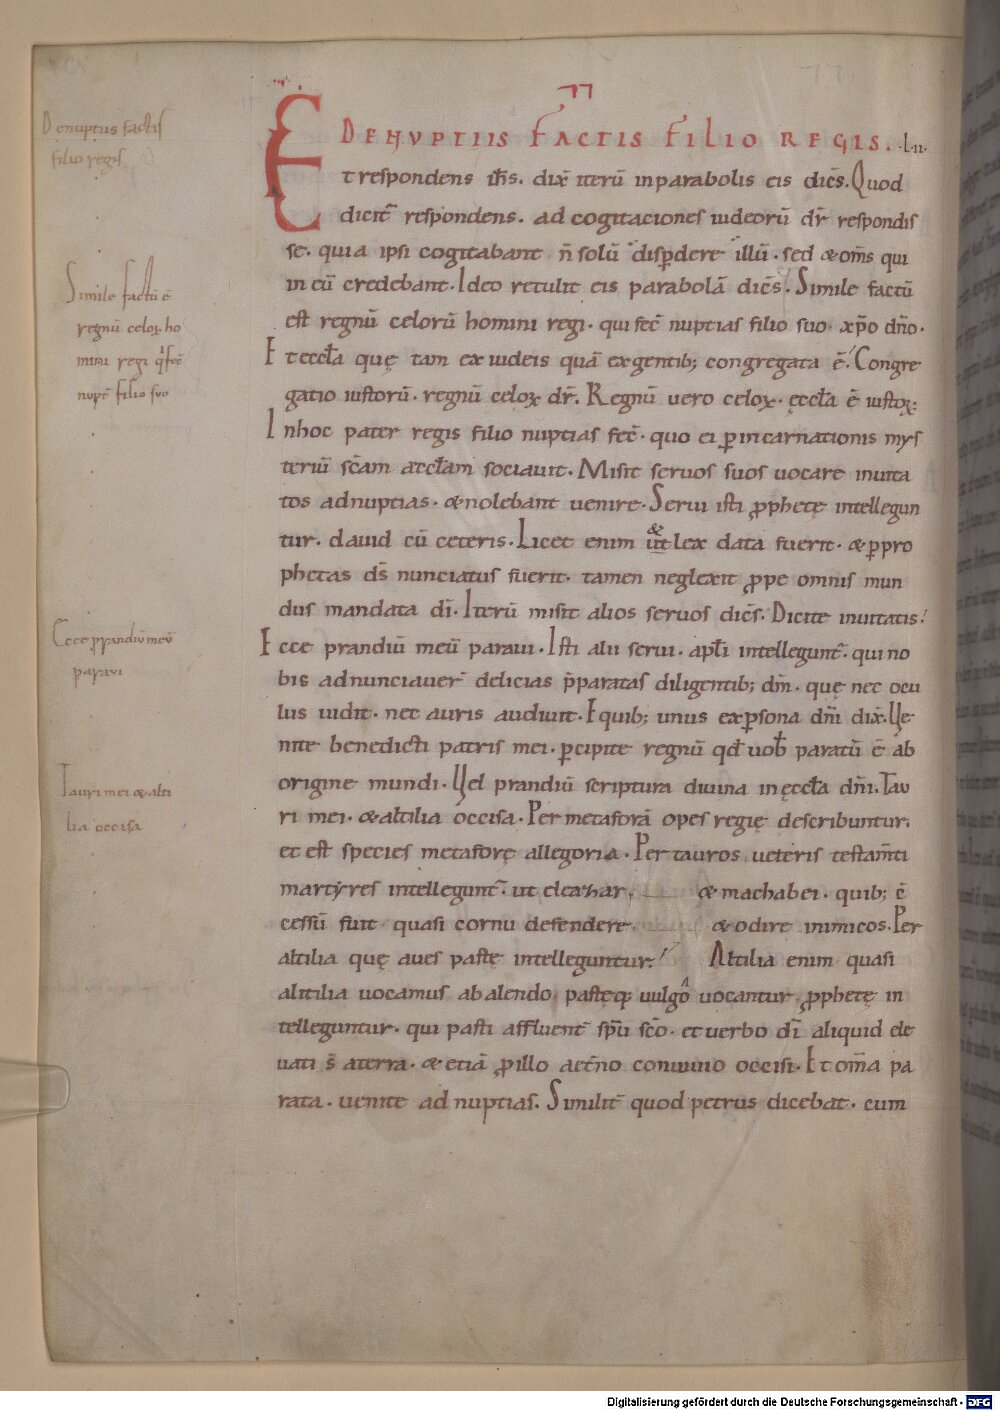 DENVPTIIS FACTIS FILIO REGIS. .L.II.
Et respondens ihs̄. dix̄ iterū inparabolis eis dicēs. Quod
dicit̄ respondens. ad cogitaciones iudeorū dr̄ respondis
se. quia ipsi cogitabant n̄ solū disꝑdere illū. sed & om̄s qui
in eū credebant. Ideo retulit eis parabolā dicēs. Simile factū
est regnū celorū homini regi. qui fec̄ nuptias filio suo. xp̄o dn̄o.
Et eccl̄a quę tam ex iudeis quā ex gentib; congregata ē. Congre
gatio iustorū. regnū celoꝝ dr̄. Regnū uero celoꝝ. ęccl̄a ē iustoꝝ.
In hoc pater regis filio nuptias fec̄. quo ei ꝑ incarnationis mys
teriū sc̄am aeccl̄am sociauit. Misit seruos suos uocare inuita
tos ad nuptias. & nolebant uenire. Serui isti ꝓphetę intellegun
tur. dauid cū ceteris. Licet enim ut & lex data fuerit. & ꝑ pro
phetas ds̄ nunciatus fuerit. tamen neglexit ꝓpe omnis mun
dus mandata dī. Iterū misit alios seruos dicēs. Dicite inuitatis.
Ecce prandiū meū paraui. Isti alii serui. apl̄i intellegunt̄. qui no
bis adnunciauer̄ delicias p̄paratas diligentib; dm̄. quę nec ocu
lus uidit. nec auris audiuit. E quib; unus ex ꝑsona dn̄i dix̄. Ve
nite benedicti patris mei. ꝑcipite regnū qd̄ uob̄ paratū ē ab
origine mundi. Vel prandiū scriptura diuina in ęccl̄a dn̄i. Tau
ri mei. & altilia occisa. Per metaforā opes regię describuntur.
et est species metaforę allegoria. Per tauros ueteris testam̄ti
martyres intellegunt̄. ut eleazar & machabei. quib; ē
cessū fuit quasi cornu defendere & odire inimicos. Per
altilia quę aues pastę intelleguntur. Altilia enim quasi
alitilia uocamus ab alendo. pastęq; uulgo uocantur. ꝓphetę in
telleguntur. qui pasti affluent̄ spū sc̄o. et uerbo dī aliquid ele
uati s̄ a terra. & etiā ꝓ illo aet̄no conuiuio occisi. Et om̄a pa
rata. uenite ad nuptias. Similit̄ quod petrus dicebat. cum
Denuptiis factis
filio regis
Simile factū ē
regnū celoꝝ ho
mini regi q̇ fec̄
nupt̄ filio suo
Ecce prandiū meū
paraui
Tauri mei & alti
lia occisa
Digitalisierung gefördert durch die Deutsche Forschungsgemeinschaft - DFG